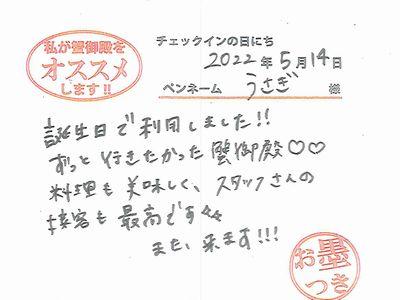 私が蟹御殿を
オススメ
します!!
チェックインの日にち
2022年5月14日
ペンネーム うさぎ 様
誕生日で利用しました!!
ずっと行きたかった蟹御殿♡♡
料理も美味しく、スタッフさんの
接客も最高です
また、来ます!!!
お墨
つき